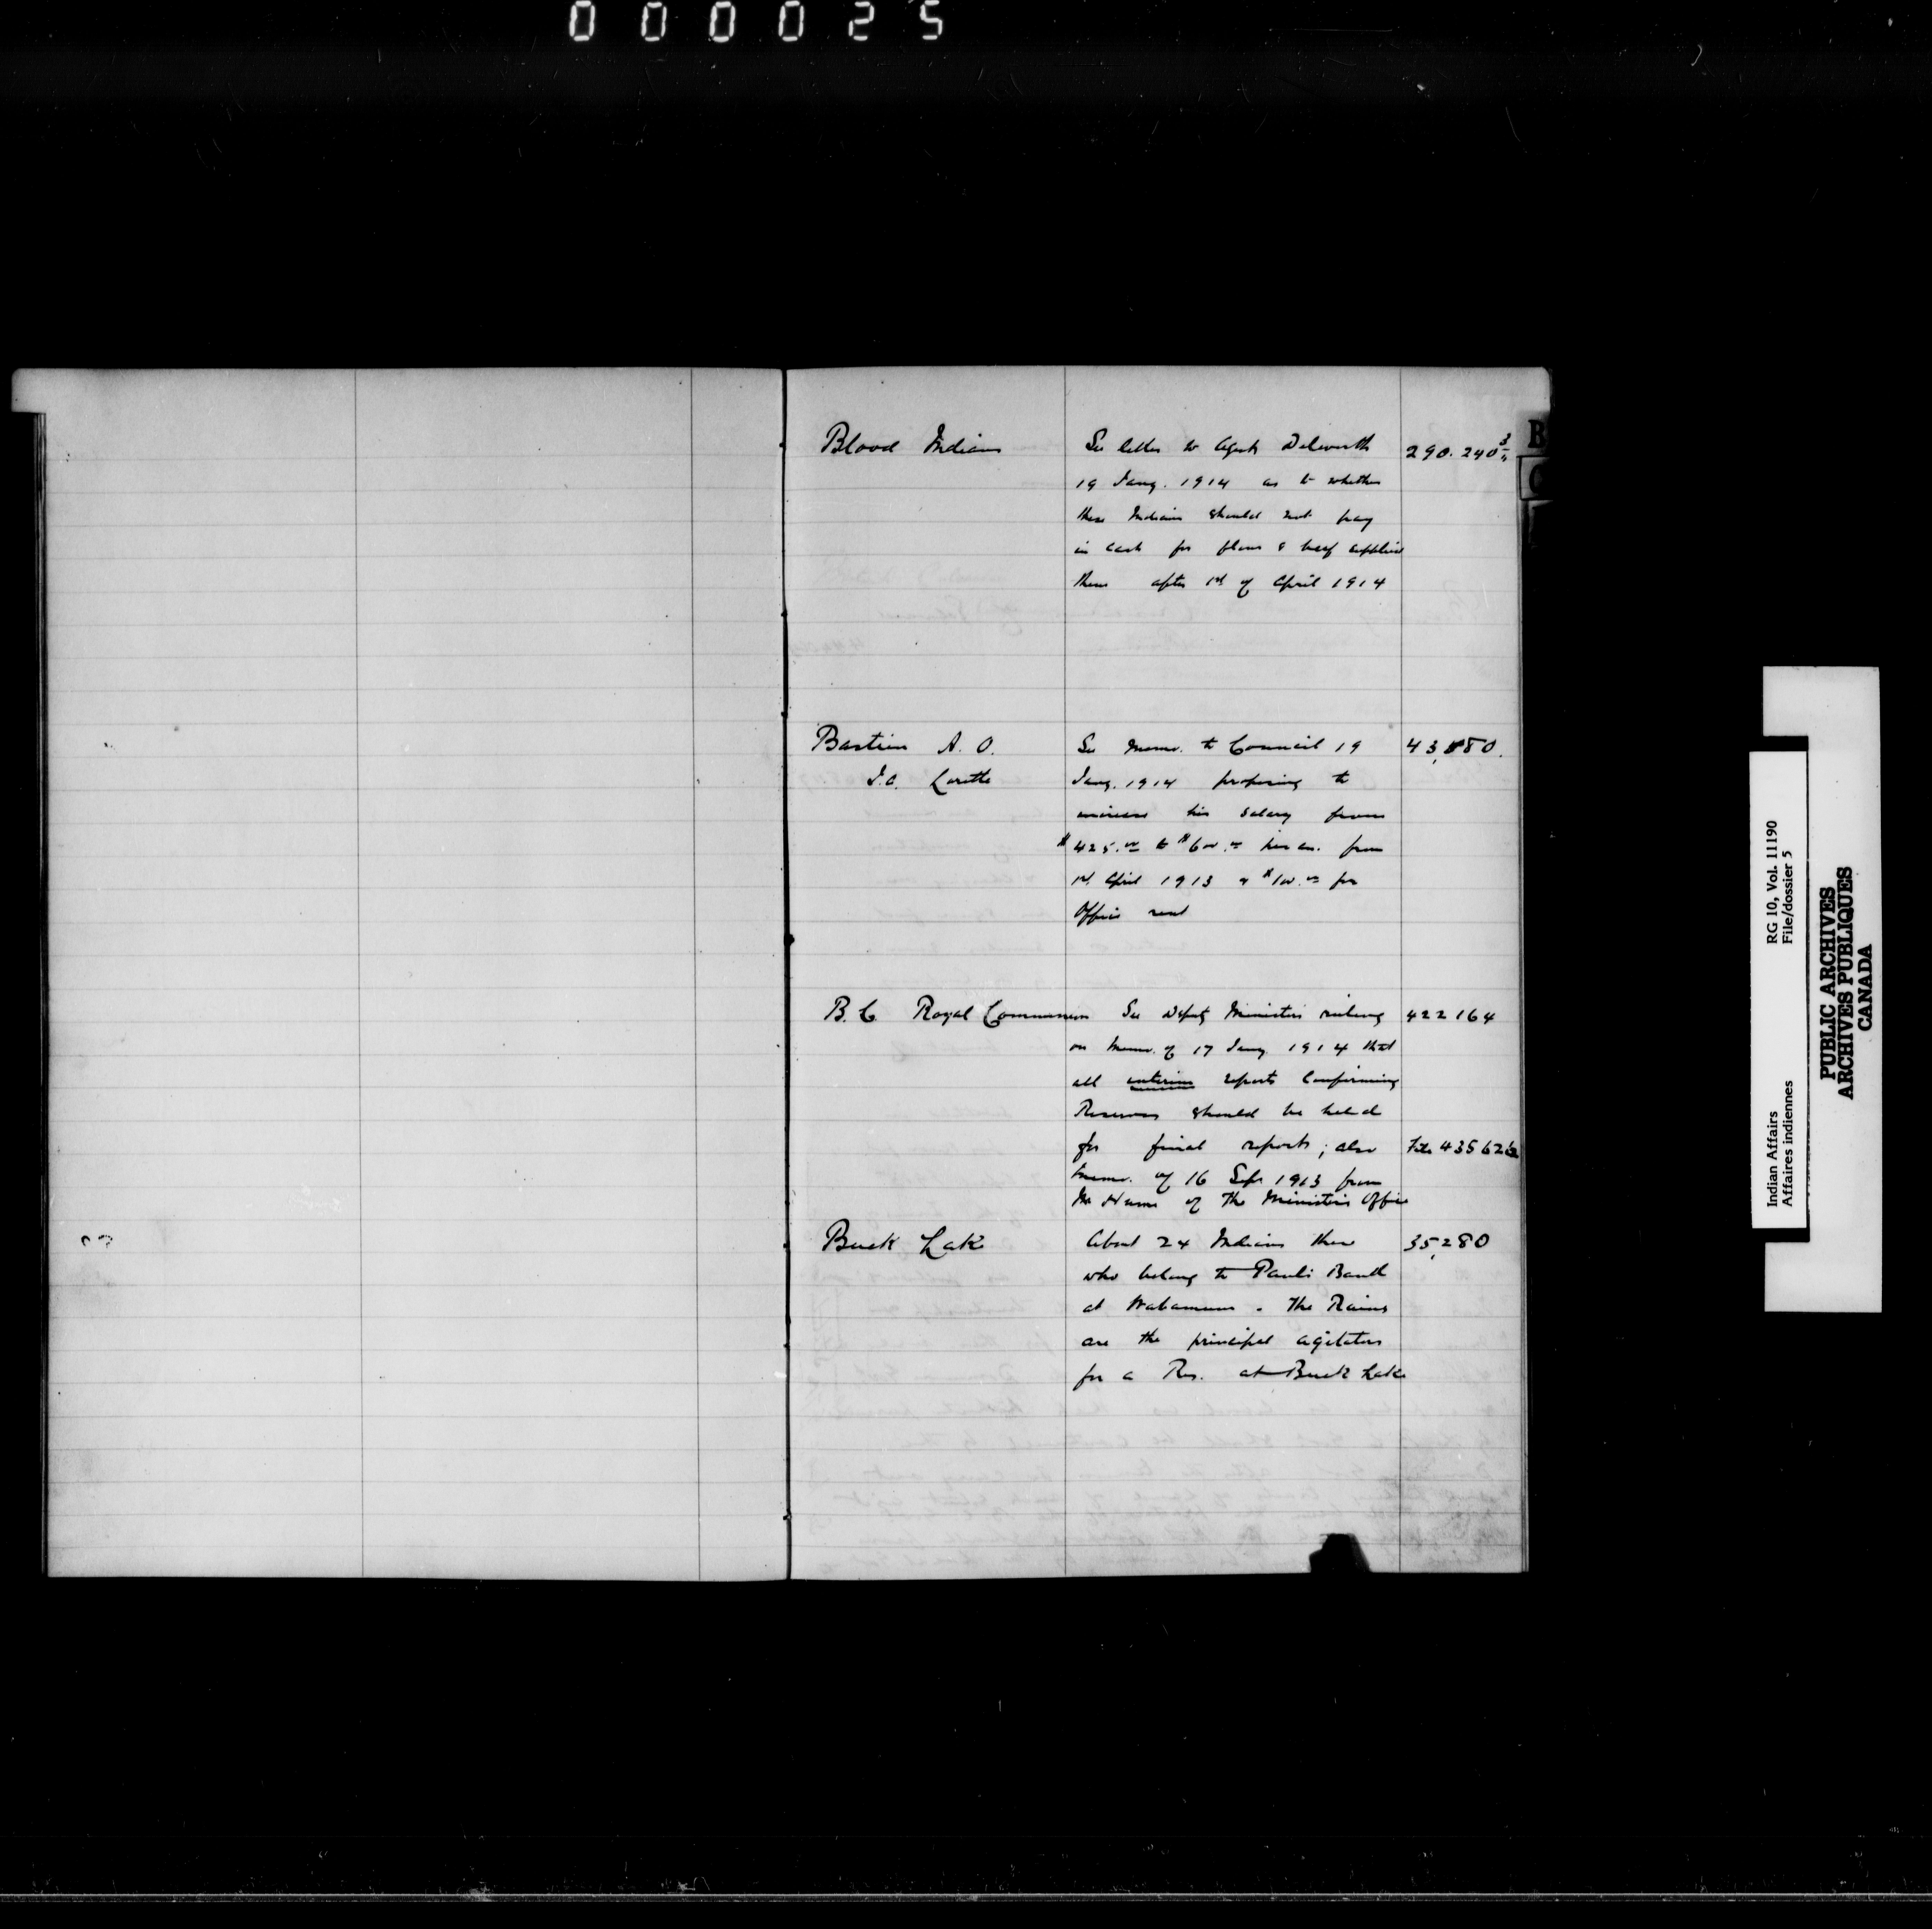 000025
Blood Indians See letter to Agent Dilworth 290.240-3
19 Jany. 1914 as to whether
these Indians should not pay
in cash for flour & beef supplied
them after 1st of April 1914
Bastien A. O. See memo. to Council 19 43,180.
I.A. Lorette Jany. 1914 proposing to
increase his salary from
$425.00 to $600.00 per an. from
1st April 1913 & $100.00 for
Office rent
B. C. Royal Commission See Deputy Ministers ruling 422164
on memo. of 17 Jany. 1914 that
all interim reports Confirming
Reserves should be held
for final report; also File 435626
memo. of 16 Sept 1913 from
Mr. of the Ministers Office
Buck Lake About 24 Indians there 35,280
who belong to Pauls Band
at Wabamun. The Rains
are the principal agitators
for a Res. at Buck Lake
B
C
Indian Affairs RG 10, Vol. 11190
Affaires indiennes File/dossier 5
PUBLIC ARCHIVES
ARCHIVES PUBLIQUES
CANADA